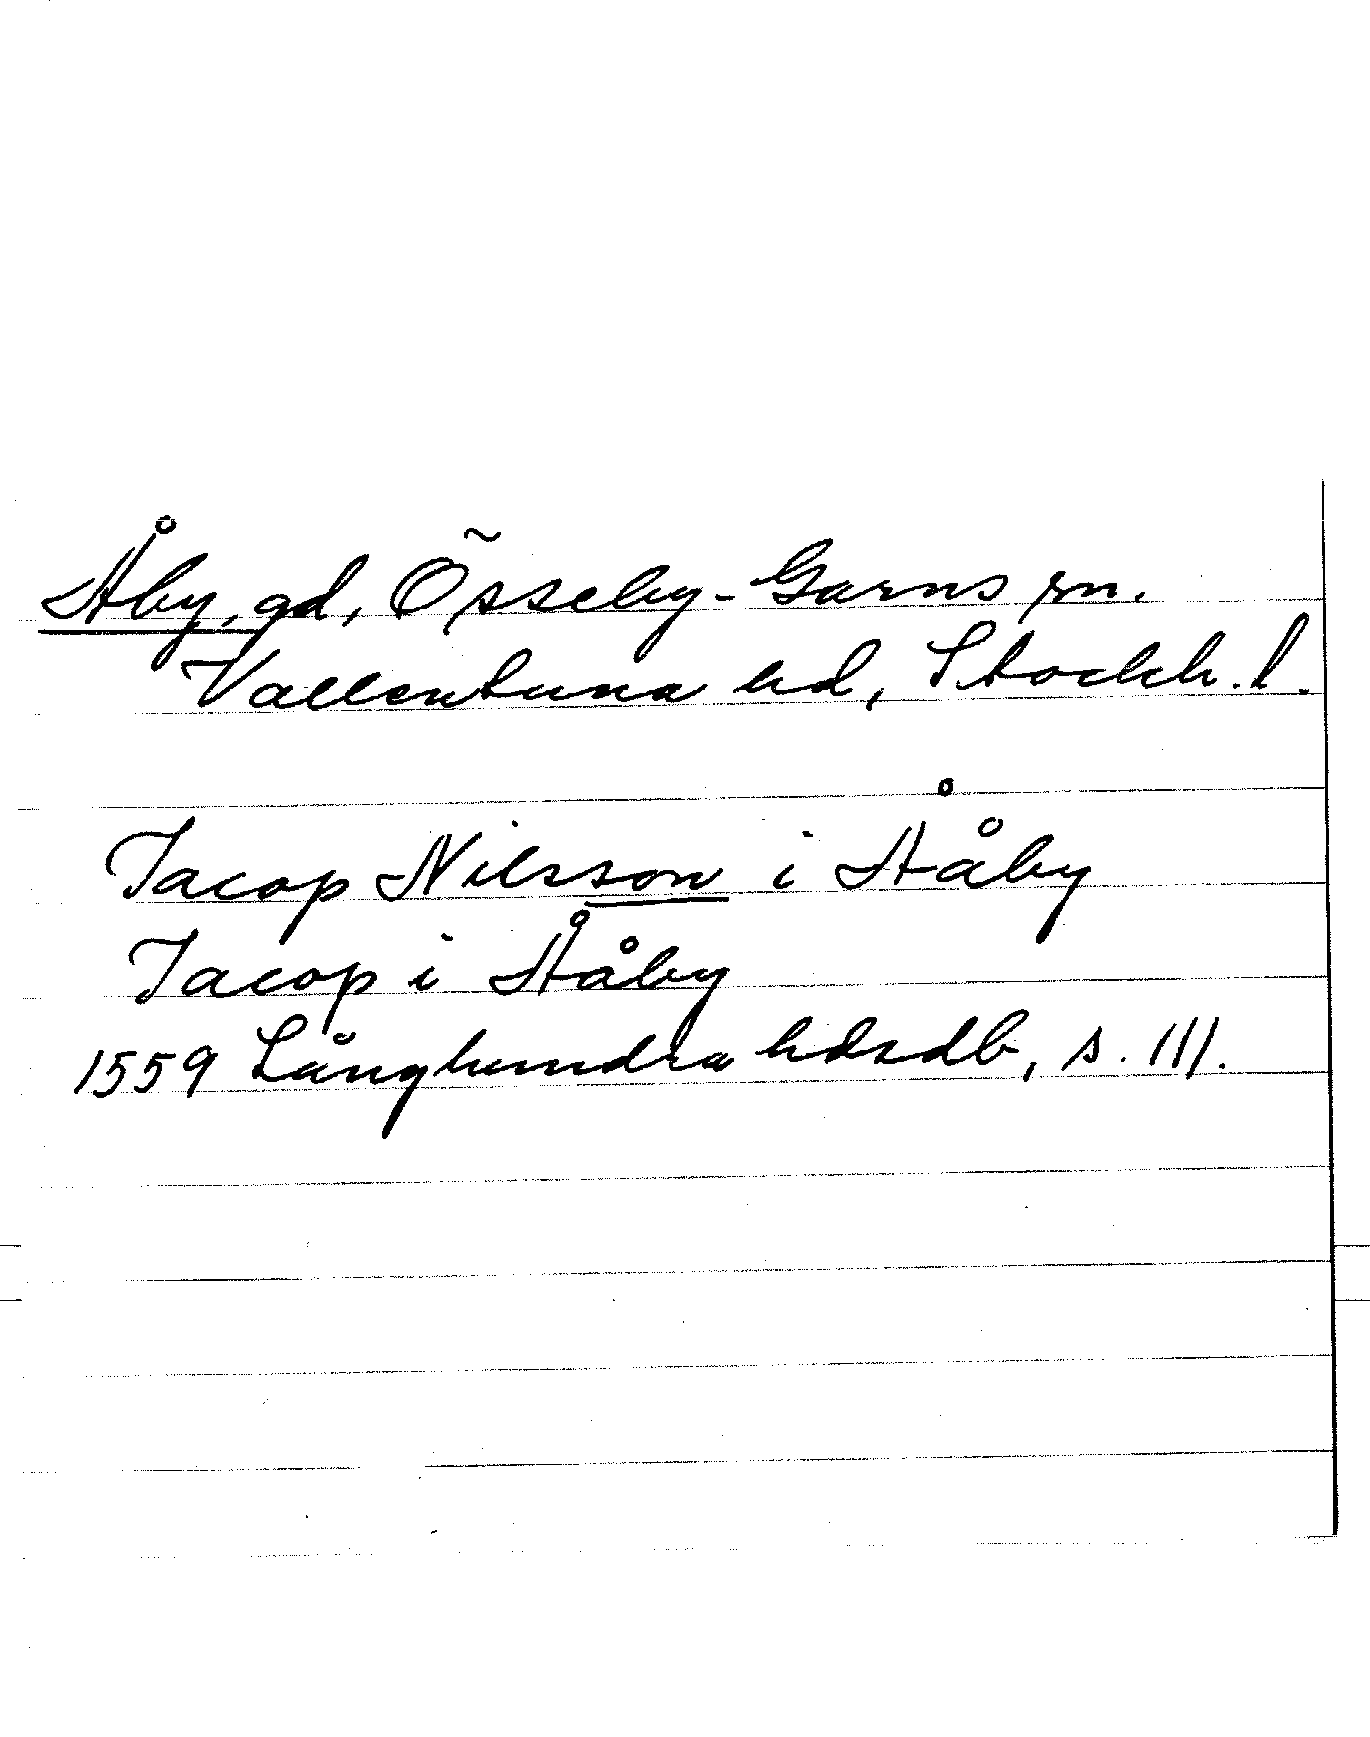 Åby, gd, Össeby-Garns sn.
Vallentuna hd, Stockh. l.
Jacop Nilsson i Ååby
Jacop i Ååby
1559 Långhundra hdsdb, s. 111.